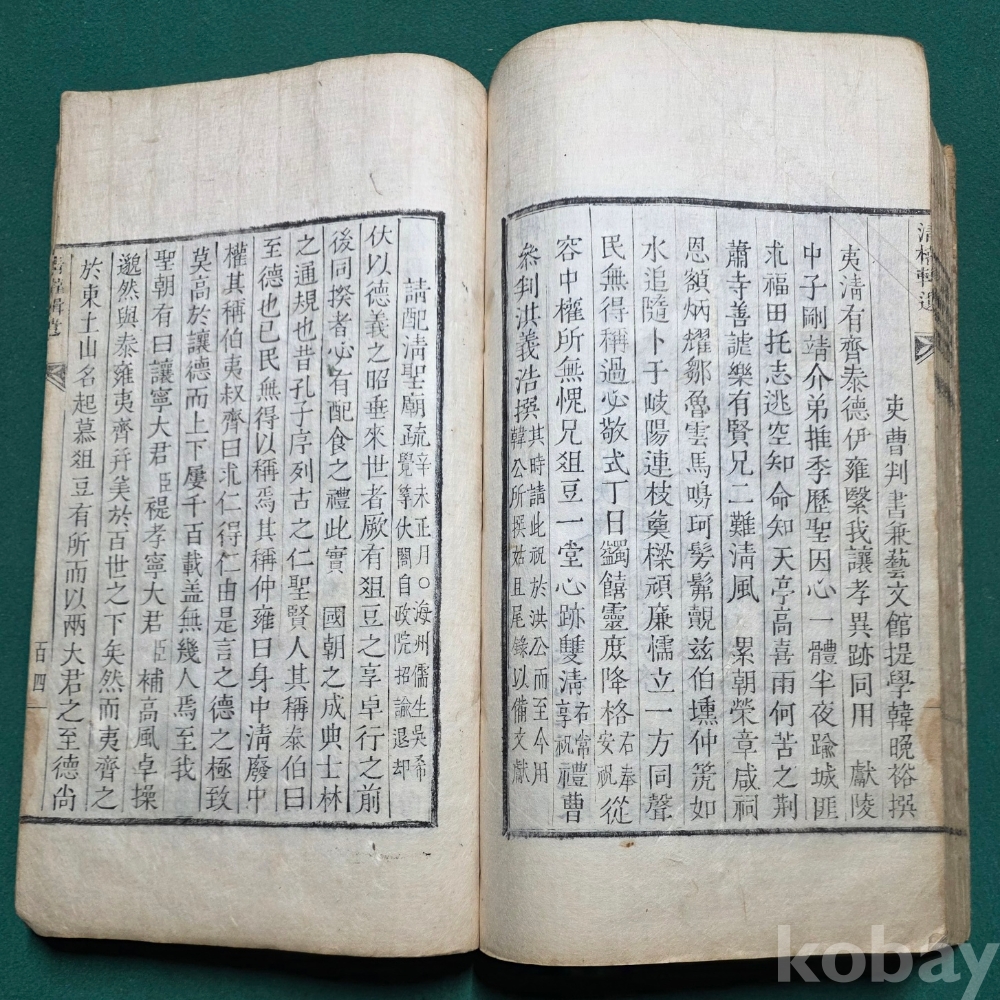 清權輯遺
吏曹判書兼藝文館提學韓晚裕撰
夷淸有齊泰德伊雍繄我讓孝異跡同用 獻陵
中子剛靖介弟推季歷聖因心一體半夜踰城匪
求福田托志逃空知命知天亭高喜雨何苦之荆
蕭寺善謔樂有賢兄二難淸風 累朝榮章咸祠
恩額炳燿鄒魯雲馬鳴珂髣髴覿玆伯壎仲箎如
水追隨卜于岐陽連枝奠樑頑廉懦立一方同聲
民無得稱過必敬式丁日蠲饎靈庶降格右奉安祝從
容中權所無愧兄俎豆一堂心跡雙淸右常享祝禮曹
參判洪義浩撰其時請此祝於洪公而至今用
韓公所撰姑且尾錄以備文獻
請配淸聖廟疏辛未正月○海州儒生吳希
覺等伏閤自政院招諭退却
伏以德義之昭垂來世者厥有俎豆之享卓行之前
後同揆者必有配食之禮此實 國朝之成典士林
之通規也昔孔子序列古之仁聖賢人其稱泰伯曰
至德也已民無得以稱焉其稱仲雍曰身中淸廢中
權其稱伯夷叔齊曰求仁得仁由是言之德之極致
莫高於讓德而上下屢千百載盖無幾人焉至我
聖朝有曰讓寧大君臣禔孝寧大君臣補高風卓操
邈然與泰雍夷齊幷美於百世之下矣然而夷齊之
於東土山名起慕俎豆有所而以兩大君之至德尙
百四
kobay